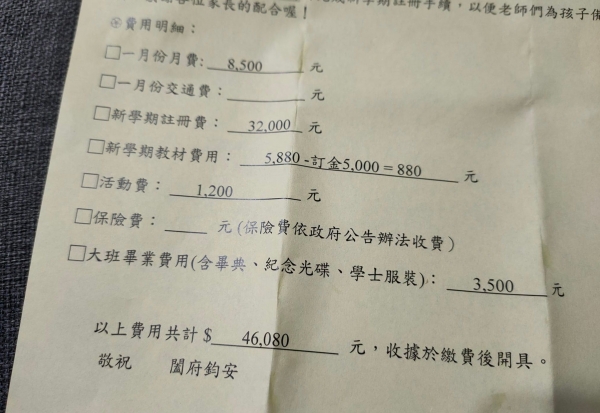 各位家長的配合喔！
新學期註冊手續，以便老師們為孩子備
費用明細：
□一月份月費: 8,500 元
□一月份交通費: 元
□新學期註冊費： 32,000 元
□新學期教材費用： 5,880 -訂金5,000 = 880 元
□活動費： 1,200 元
□保險費： 元 (保險費依政府公告辦法收費)
□大班畢業費用(含畢典、紀念光碟、學士服裝)： 3,500 元
以上費用共計 $ 46,080 元，收據於繳費後開具。
敬祝 闔府鈞安